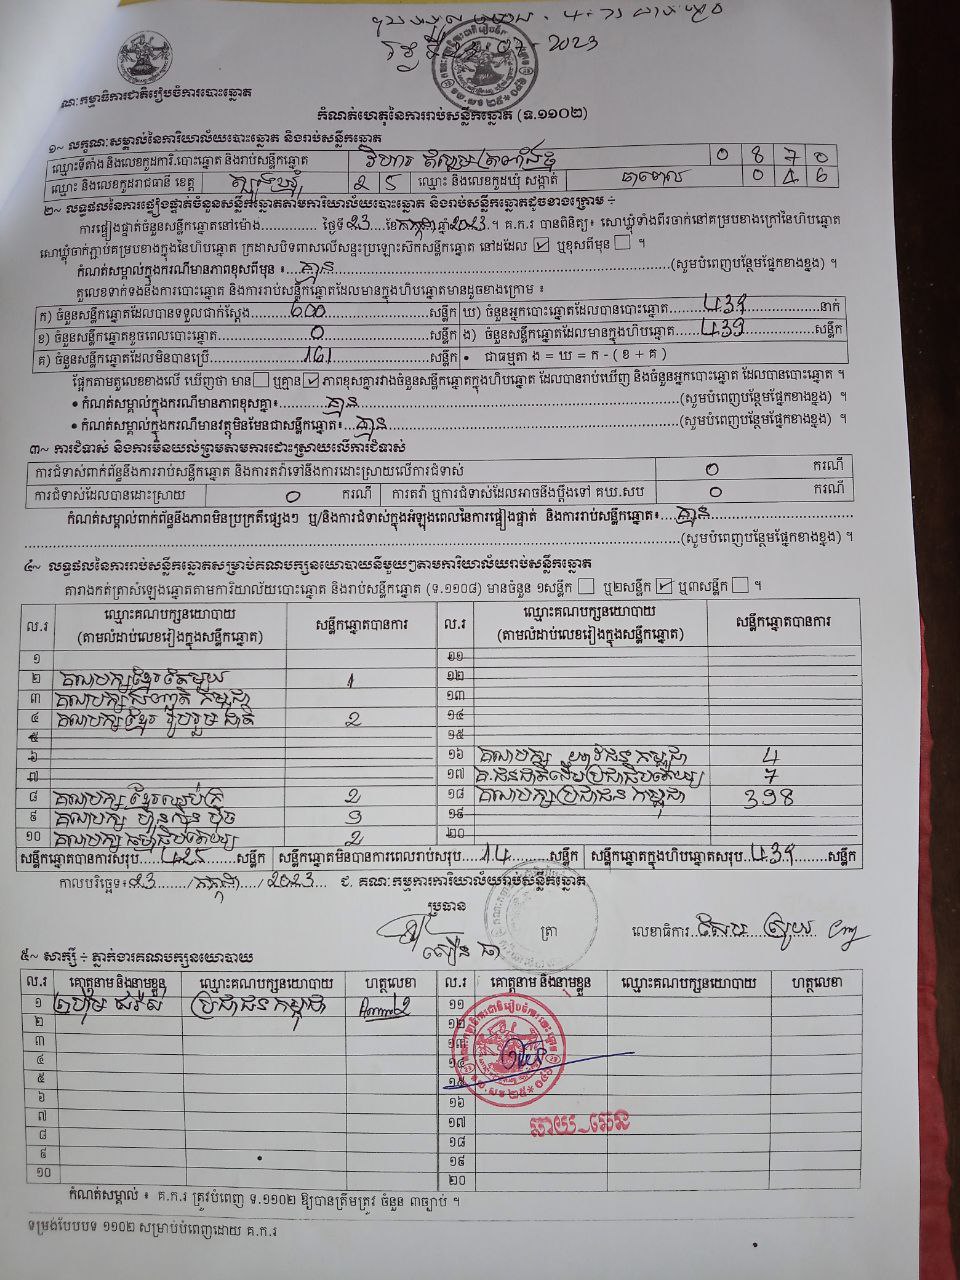 គណៈកម្មាធិការជាតិរៀបចំការបោះឆ្នោត
2023
កំណត់ហេតុនៃការរាប់សន្លឹកឆ្នោត (ទ.១១០២)
១~ លក្ខណៈសម្គាល់នៃការិយាល័យបោះឆ្នោត និងរាប់សន្លឹកឆ្នោត
ឈ្មោះទីតាំង និងលេខកូដការិ.បោះឆ្នោត និងរាប់សន្លឹកឆ្នោត វិហារ 0 8 7 0
ឈ្មោះ និងលេខកូដរាជធានី ខេត្ត ត្បូងឃ្មុំ 2 5 ឈ្មោះ និងលេខកូដឃុំ សង្កាត់ 0 4 6
២~ លទ្ធផលនៃការផ្ទៀងផ្ទាត់ចំនួនសន្លឹកឆ្នោតតាមការិយាល័យបោះឆ្នោត និងរាប់សន្លឹកឆ្នោតដូចខាងក្រោម ÷
ការផ្ទៀងផ្ទាត់ចំនួនសន្លឹកឆ្នោតនៅម៉ោង.............. ថ្ងៃទី 23 ខែ កក្កដា ឆ្នាំ 2023 ។ គ.ក.រ បានពិនិត្យ៖ សោឃ្លុំទាំងពីរចាក់នៅគម្របខាងក្រៅនៃហិបឆ្នោត
សោឃ្លុំចាក់ភ្ជាប់គម្របខាងក្នុងនៃហិបឆ្នោត ក្រដាសបិទពាសលើសន្ទះប្រឡោះស៊ីកសន្លឹកឆ្នោត នៅដដែល ☑ ឬខុសពីមុន ☐ ។
កំណត់សម្គាល់ក្នុងករណីមានភាពខុសពីមុន ៖ គ្មាន (សូមបំពេញបន្ថែមផ្នែកខាងខ្នង) ។
តួលេខទាក់ទងនឹងការបោះឆ្នោត និងការរាប់សន្លឹកឆ្នោតដែលមានក្នុងហិបឆ្នោតមានដូចខាងក្រោម ៖
ក) ចំនួនសន្លឹកឆ្នោតដែលបានទទួលជាក់ស្តែង 600 សន្លឹក ឃ) ចំនួនអ្នកបោះឆ្នោតដែលបានបោះឆ្នោត 439 នាក់
ខ) ចំនួនសន្លឹកឆ្នោតខូចពេលបោះឆ្នោត 0 សន្លឹក ង) ចំនួនសន្លឹកឆ្នោតដែលមានក្នុងហិបឆ្នោត 439 សន្លឹក
គ) ចំនួនសន្លឹកឆ្នោតដែលមិនបានប្រើ 161 សន្លឹក • ជាធម្មតា ង = ឃ = ក - ( ខ + គ )
ផ្អែកតាមតួលេខខាងលើ ឃើញថា មាន ☐ ឬគ្មាន ☑ ភាពខុសគ្នារវាងចំនួនសន្លឹកឆ្នោតក្នុងហិបឆ្នោត ដែលបានរាប់ឃើញ និងចំនួនអ្នកបោះឆ្នោត ដែលបានបោះឆ្នោត ។
• កំណត់សម្គាល់ក្នុងករណីមានភាពខុសគ្នា៖ គ្មាន (សូមបំពេញបន្ថែមផ្នែកខាងខ្នង) ។
• កំណត់សម្គាល់ក្នុងករណីមានវត្ថុមិនមែនជាសន្លឹកឆ្នោត៖ គ្មាន (សូមបំពេញបន្ថែមផ្នែកខាងខ្នង) ។
៣~ ការជំទាស់ និងការមិនយល់ព្រមតាមការដោះស្រាយលើការជំទាស់
ការជំទាស់ពាក់ព័ន្ធនឹងការរាប់សន្លឹកឆ្នោត និងការតវ៉ាទៅនឹងការដោះស្រាយលើការជំទាស់ 0 ករណី
ការជំទាស់ដែលបានដោះស្រាយ 0 ករណី ការតវ៉ា ឬការជំទាស់ដែលអាចនឹងប្តឹងទៅ គឃ.សប 0 ករណី
កំណត់សម្គាល់ពាក់ព័ន្ធនឹងភាពមិនប្រក្រតីផ្សេងៗ ឬ/និងការជំទាស់ក្នុងអំឡុងពេលនៃការផ្ទៀងផ្ទាត់ និងការរាប់សន្លឹកឆ្នោត៖ គ្មាន
(សូមបំពេញបន្ថែមផ្នែកខាងខ្នង) ។
៤~ លទ្ធផលនៃការរាប់សន្លឹកឆ្នោតសម្រាប់គណបក្សនយោបាយនីមួយៗតាមការិយាល័យរាប់សន្លឹកឆ្នោត
តារាងកត់ត្រាសំឡេងឆ្នោតតាមការិយាល័យបោះឆ្នោត និងរាប់សន្លឹកឆ្នោត (ទ.១១០៨) មានចំនួន ១សន្លឹក ☐ ឬ២សន្លឹក ☑ ឬ៣សន្លឹក ☐ ។
ល.រ ឈ្មោះគណបក្សនយោបាយ (តាមលំដាប់លេខរៀងក្នុងសន្លឹកឆ្នោត) សន្លឹកឆ្នោតបានការ ល.រ ឈ្មោះគណបក្សនយោបាយ (តាមលំដាប់លេខរៀងក្នុងសន្លឹកឆ្នោត) សន្លឹកឆ្នោតបានការ
១ ១១
២ គណបក្សខ្មែរតែមួយ 1 ១២
៣ គណបក្ស កម្ពុជា ១៣
៤ គណបក្សខ្មែរ រួបរួមជាតិ 2 ១៤
៥ ១៥
៦ ១៦ គណបក្ស យុវជនកម្ពុជា 4
៧ ១៧ គ.ជនជាតិដើមប្រជាធិបតេយ្យ 7
៨ គណបក្សខ្មែរឈប់ក្រ 2 ១៨ គណបក្សប្រជាជនកម្ពុជា 398
៩ គណបក្ស ហ៊្វុនស៊ិនប៉ិច 9 ១៩
១០ គណបក្ស ប្រជាធិបតេយ្យ 2 ២០
សន្លឹកឆ្នោតបានការសរុប 425 សន្លឹក សន្លឹកឆ្នោតមិនបានការពេលរាប់សរុប 14 សន្លឹក សន្លឹកឆ្នោតក្នុងហិបឆ្នោតសរុប 439 សន្លឹក
កាលបរិច្ឆេទ៖ 23 / កក្កដា / 2023 ជ. គណៈកម្មការការិយាល័យរាប់សន្លឹកឆ្នោត
ប្រធាន
ត្រា លេខាធិការ
៥~ សាក្សី ÷ ភ្នាក់ងារគណបក្សនយោបាយ
ល.រ គោត្តនាម និងនាមខ្លួន ឈ្មោះគណបក្សនយោបាយ ហត្ថលេខា ល.រ គោត្តនាម និងនាមខ្លួន ឈ្មោះគណបក្សនយោបាយ ហត្ថលេខា
១ ប្រជាជនកម្ពុជា ១១
២ ១២
៣ ១៣
៤ ១៤
៥ ១៥
៦ ១៦
៧ ១៧
៨ ១៨
៩ ១៩
១០ ២០
កំណត់សម្គាល់ ៖ គ.ក.រ ត្រូវបំពេញ ទ.១១០២ ឱ្យបានត្រឹមត្រូវ ចំនួន ៣ច្បាប់ ។
ទម្រង់បែបបទ ១១០២ សម្រាប់បំពេញដោយ គ.ក.រ